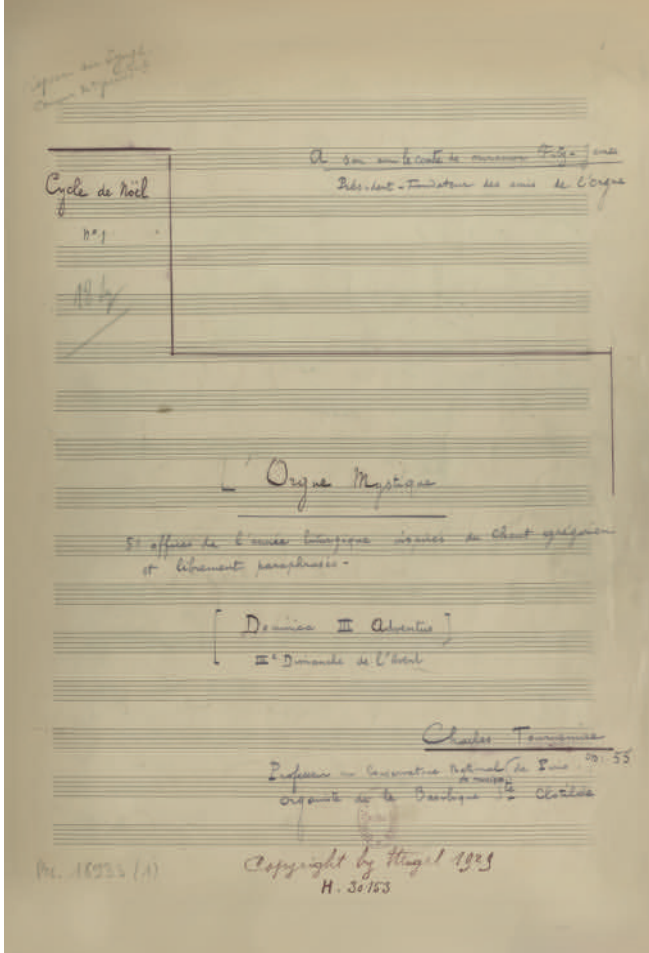 A son ami le comte de miramon Fitz-James
Président-Fondateur des amis de l'orgue
Cycle de Noël
n° 1
L'Orgue Mystique
51 offices de l'année liturgique inspirés du Chant grégorien
et librement paraphrasés -
[ Dominica III Adventus ]
IIIe Dimanche de l'Avent
Charles Tournemire
op: 55
Professeur au Conservatoire National de Paris
de musique
organiste de la Basilique Ste Clotilde
Copyright by Heugel 1929
H. 30153
Ms. 18933 (1)